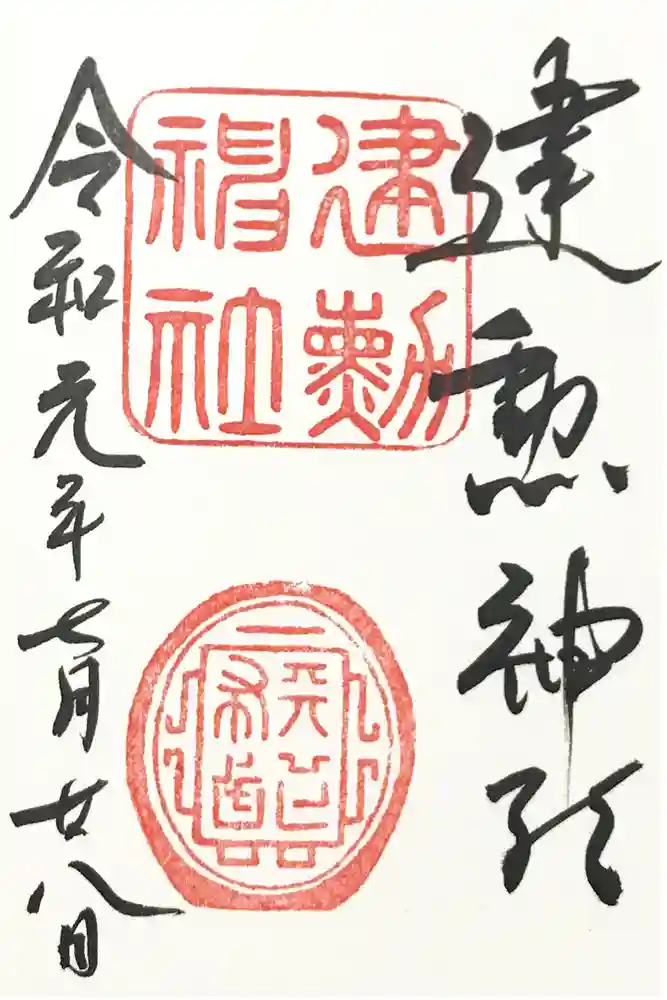 建勲神社
建勳
神社
令和元年七月廿八日